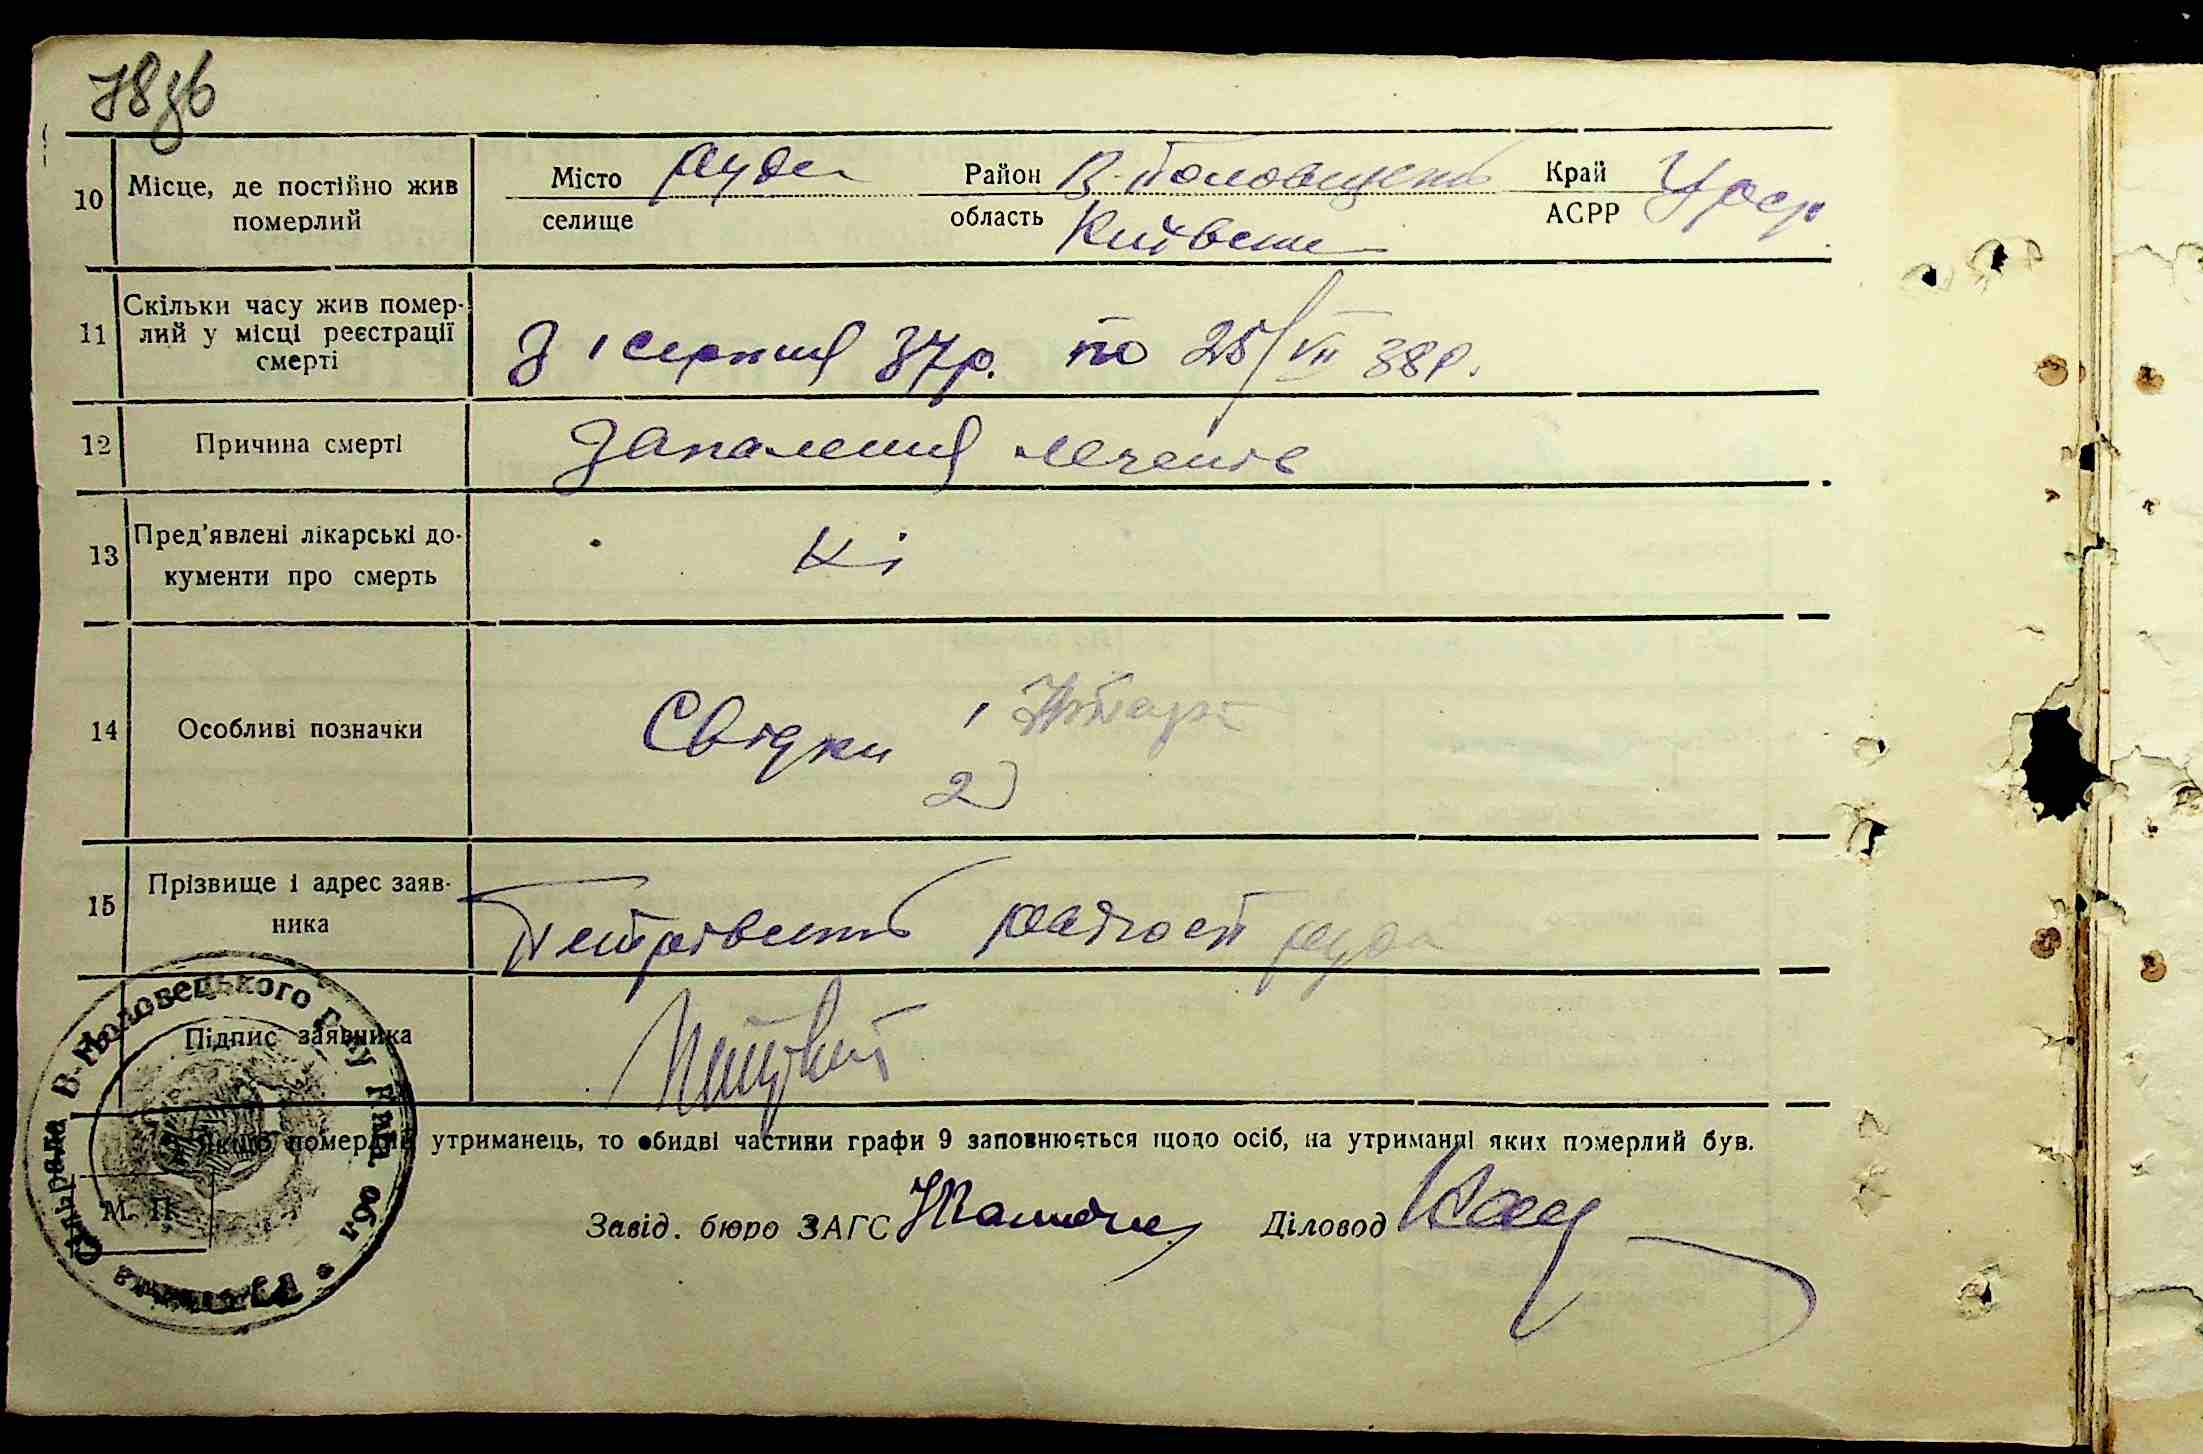 78зв
10 Місце, де постійно жив померлий
Місто Руда Район В-Половецьк Край Усрр
селище область Київськ АСРР
11 Скільки часу жив помер-
лий у місці реєстрації
смерті
З 1 серпня 37р. по 25/VII 38р.
12 Причина смерті Запалення легенів
13 Пред'явлені лікарські до-
кументи про смерть
Ні
14 Особливі позначки Свідки 1
2)
15 Прізвище і адрес заяв-
ника
Руда
Підпис заявника
Якщо померлий утриманець, то обидві частини графи 9 заповнюється щодо осіб, на утриманні яких померлий був.
М. П.
Завід. бюро ЗАГС Діловод
Сільрада В-Половецького р-ну